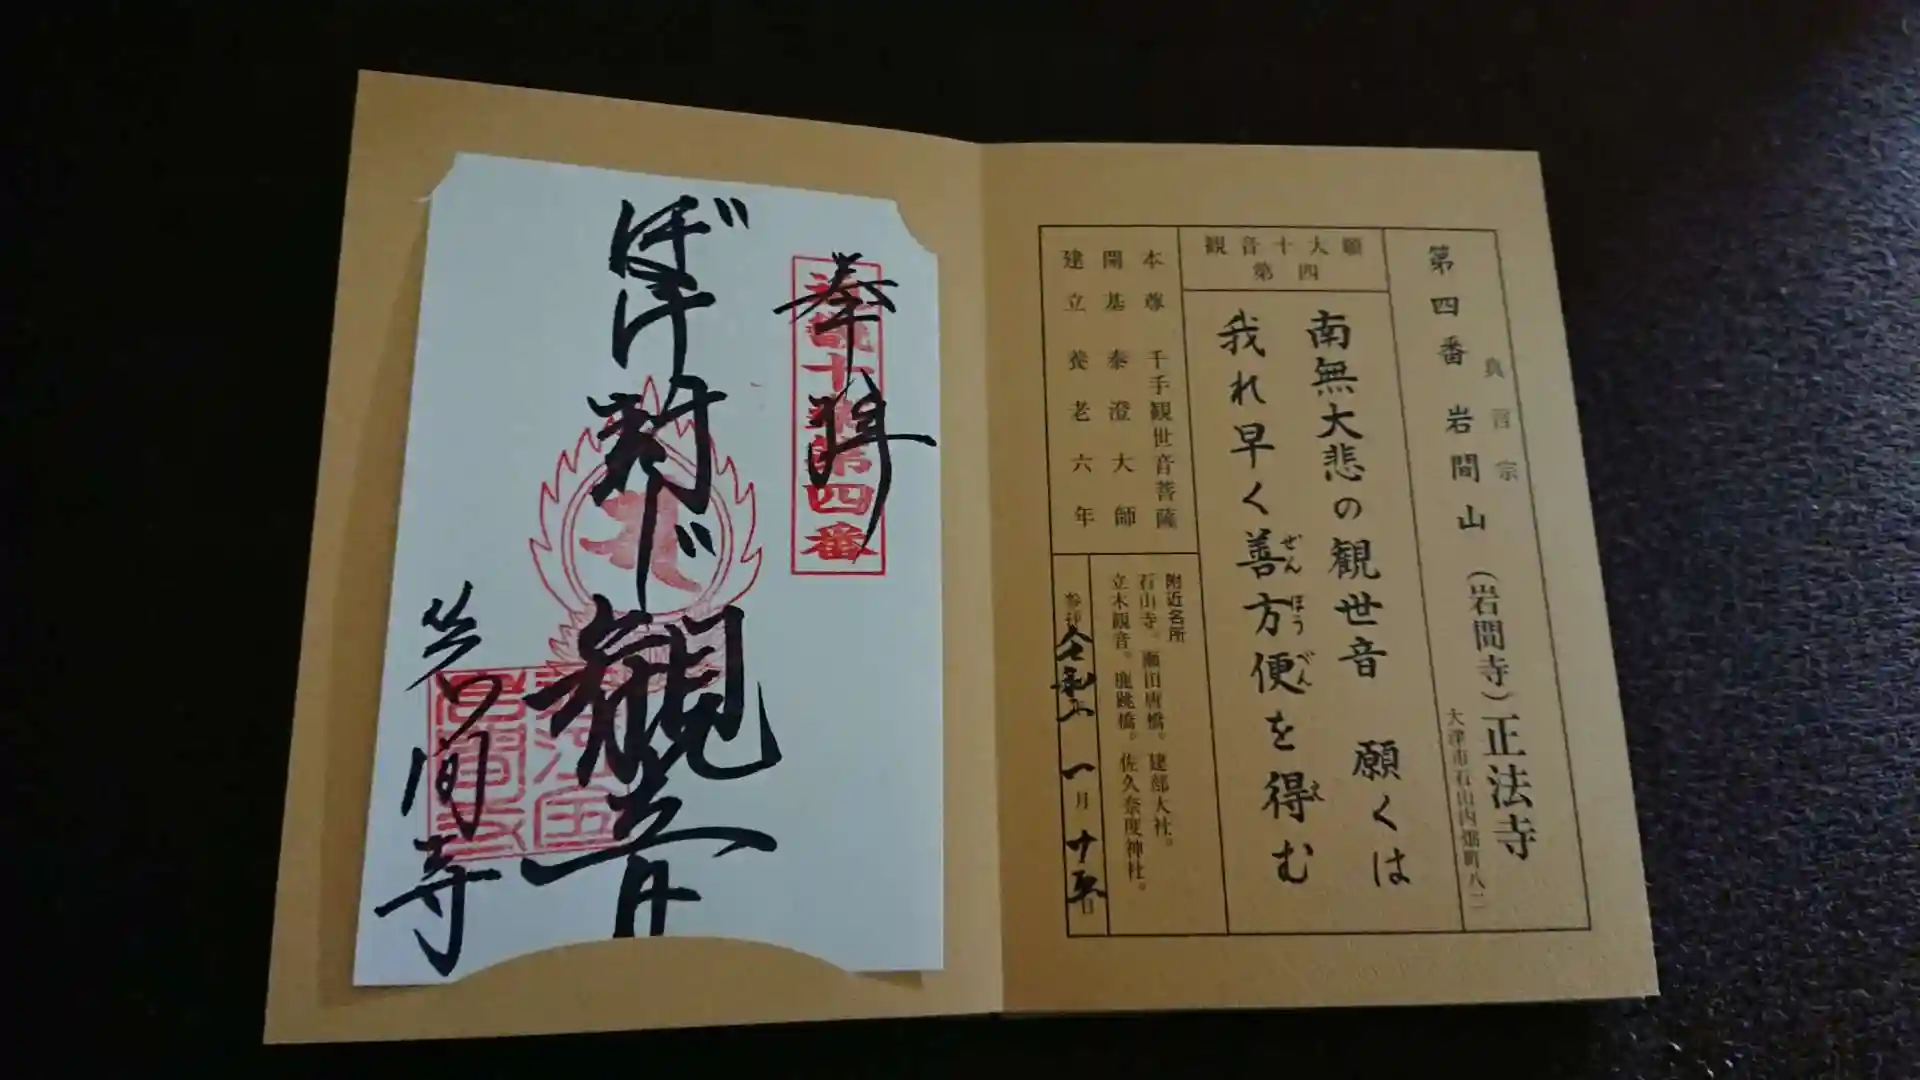 第四番 岩間山 (岩間寺) 正法寺
真言宗
大津市石山内畑町八二
観音十大願
第四
南無大悲の観世音 願くは
我れ早く善方便を得む
ぜん ほう べん え
本尊 千手観世音菩薩
開基 泰澄大師
建立 養老六年
附近名所
石山寺。瀬田唐橋。建部大社。
立木観音。鹿跳橋。佐久奈度神社。
一月十五日
奉拝
第四番
ぼけ封じ
観音
岩間寺